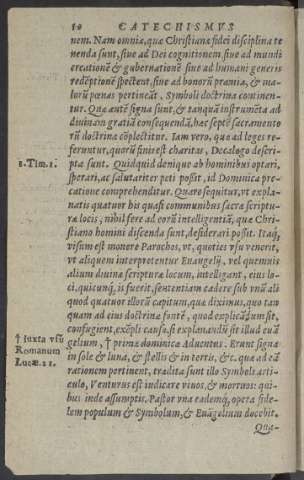 10 CATECHISMVS
nem. Nam omnia, quæ Christianæ fidei disciplina te
nenda sunt, siue ad Dei cognitionem siue ad mundi
creationẽ & gubernationẽ siue ad humani generis
redẽptionẽ spectent, siue ad bonorũ præmia, & ma-
lorũ pœnas pertineãt, Symboli doctrina continen-
tur. Quæ autẽ signa sunt, & tanquã instrumẽta ad
diuinam gratiã consequendã, hæc septẽ sacramento
rũ doctrina cõplectitur. Iam vero, quæ ad leges re-
feruntur, quorũ finis est charitas, Decalogo descri-
1. Tim. 1.
pta sunt. Quidquid denique ab hominibus optari,
sperari, ac salutariter peti possit, id Dominica pre-
catione comprehenditur. Quare sequitur, vt expla-
natis quatuor his quasi communibus sacræ scriptu-
ræ locis, nihil fere ad eorũ intelligentiã, quæ Chri-
stiano homini discenda sunt, desiderari possit. Itaq;
visum est monere Parochos, vt, quoties vsu venerit,
vt aliquem interpretentur Euangelij, vel quemuis
alium diuinæ scripturæ locum, intelligant, eius lo-
ci, quicunq; is fuerit, sententiam cadere sub vnũ ali
quod quatuor illorũ capitum, quæ diximus, quo tan
quam ad eius doctrinæ fontẽ, quod explicãdum sit,
confugient, exẽpli causa, si explanandũ sit illud euã
† Iuxta vsũ
Romanum
Lucæ. 21.
gelium, † primæ dominicæ Aduentus. Erunt signa
in sole & luna, & stellis & in terris, &c. quæ ad eã
rationem pertinent, tradita sunt illo Symboli arti-
culo, Venturus est iudicare viuos, & mortuos: qui-
bus inde assumptis, Pastor vna eademq; opera fide-
lem populum & Symbolum, & Euãgelium docebit.
Quã-